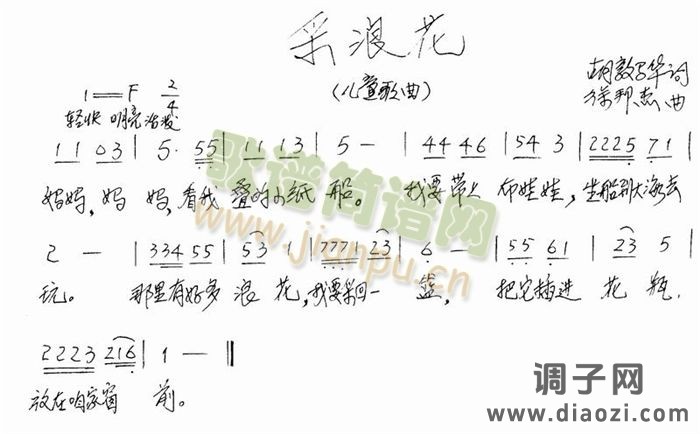 采浪花
(儿童歌曲)
1=F 2/4
轻快 明亮 活泼
胡敦华词
徐邦杰曲
1 1 0 3 | 5· 5 5 | 1 1 1 3 | 5 — | 4 4 4 6 | 5 4 3 | 2 2 2 5 7 1 |
妈妈,妈妈,看我叠的小纸船。我要带上布娃娃,坐船到大海去
2 — | 3 3 4 5 5 | 5 3 1 | 7 7 7 1 2 3 | 6 — | 5 5 6 1 | 2 3 5 |
玩。那里有好多浪花,我要采回一篮,把它插进花瓶,
2 2 2 3 2 1 6 | 1 — ‖
放在咱家窗前。
歌谱简谱网
www.jianpu.cn
调子网
www.diaozi.com